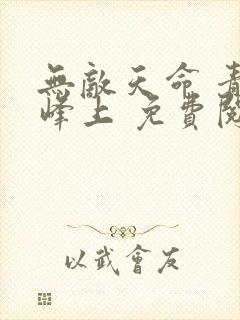 無敵天命 青
峰上 免費閱
以武會友